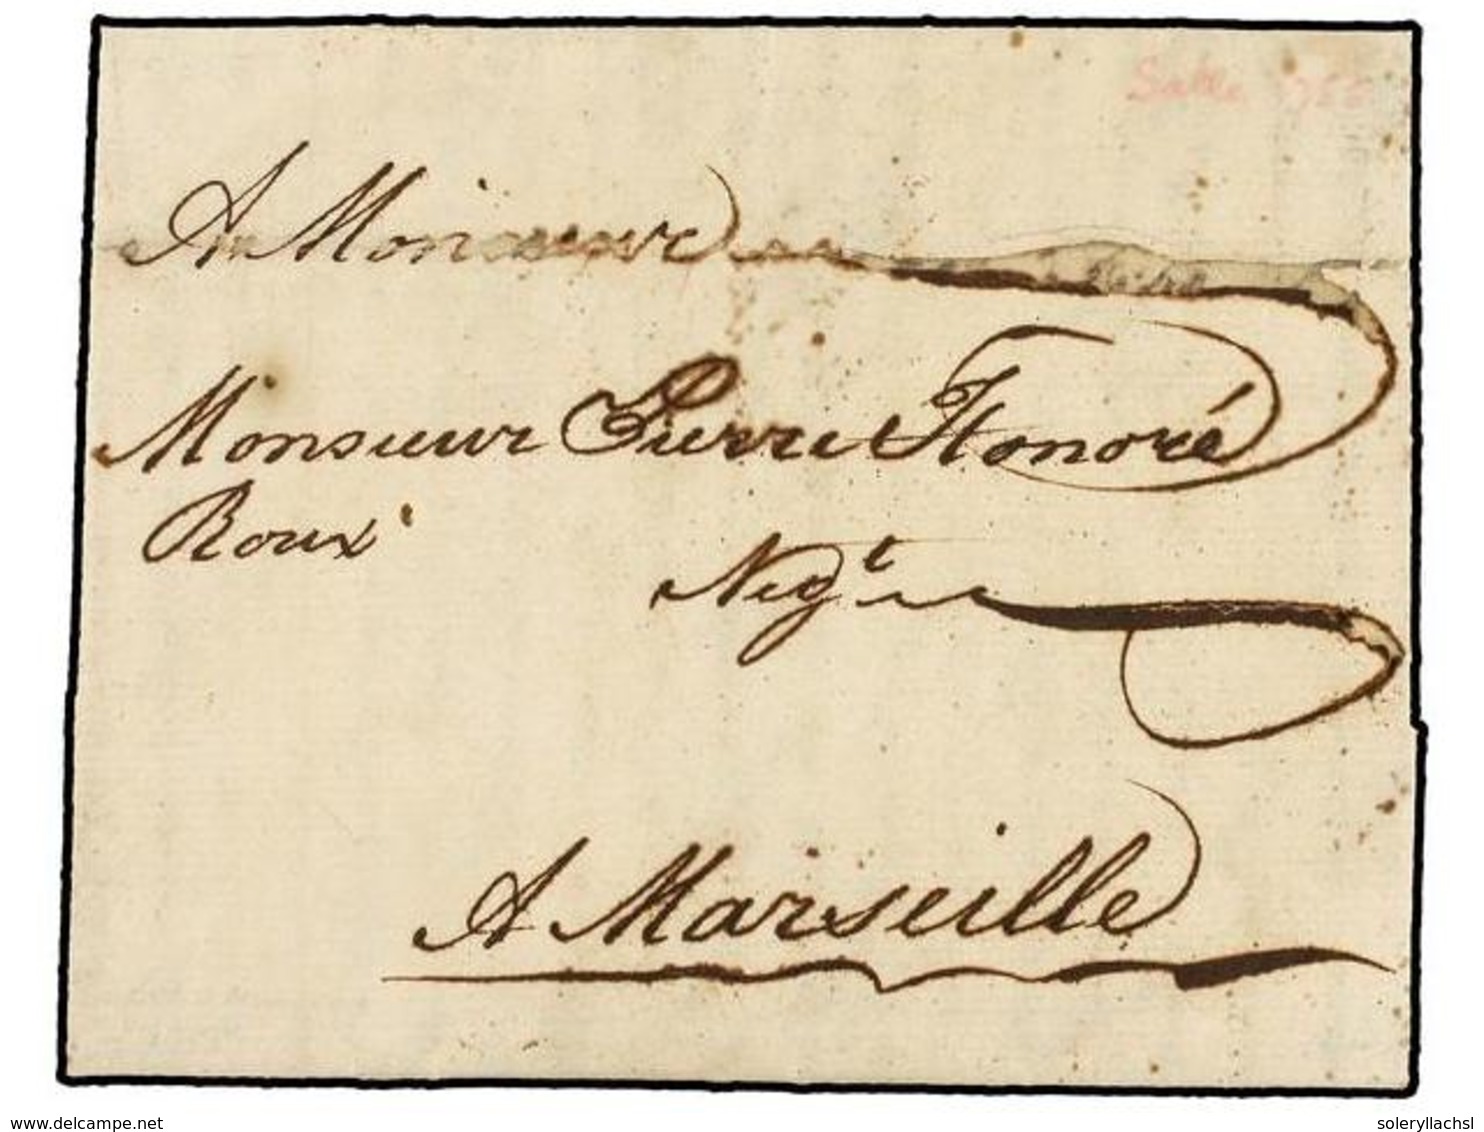 Salle 1755
A Monsieur
Monsieur Pierre Honoré
Roux
Neg.t
A Marseille
delcampe.net
soleryllachsl